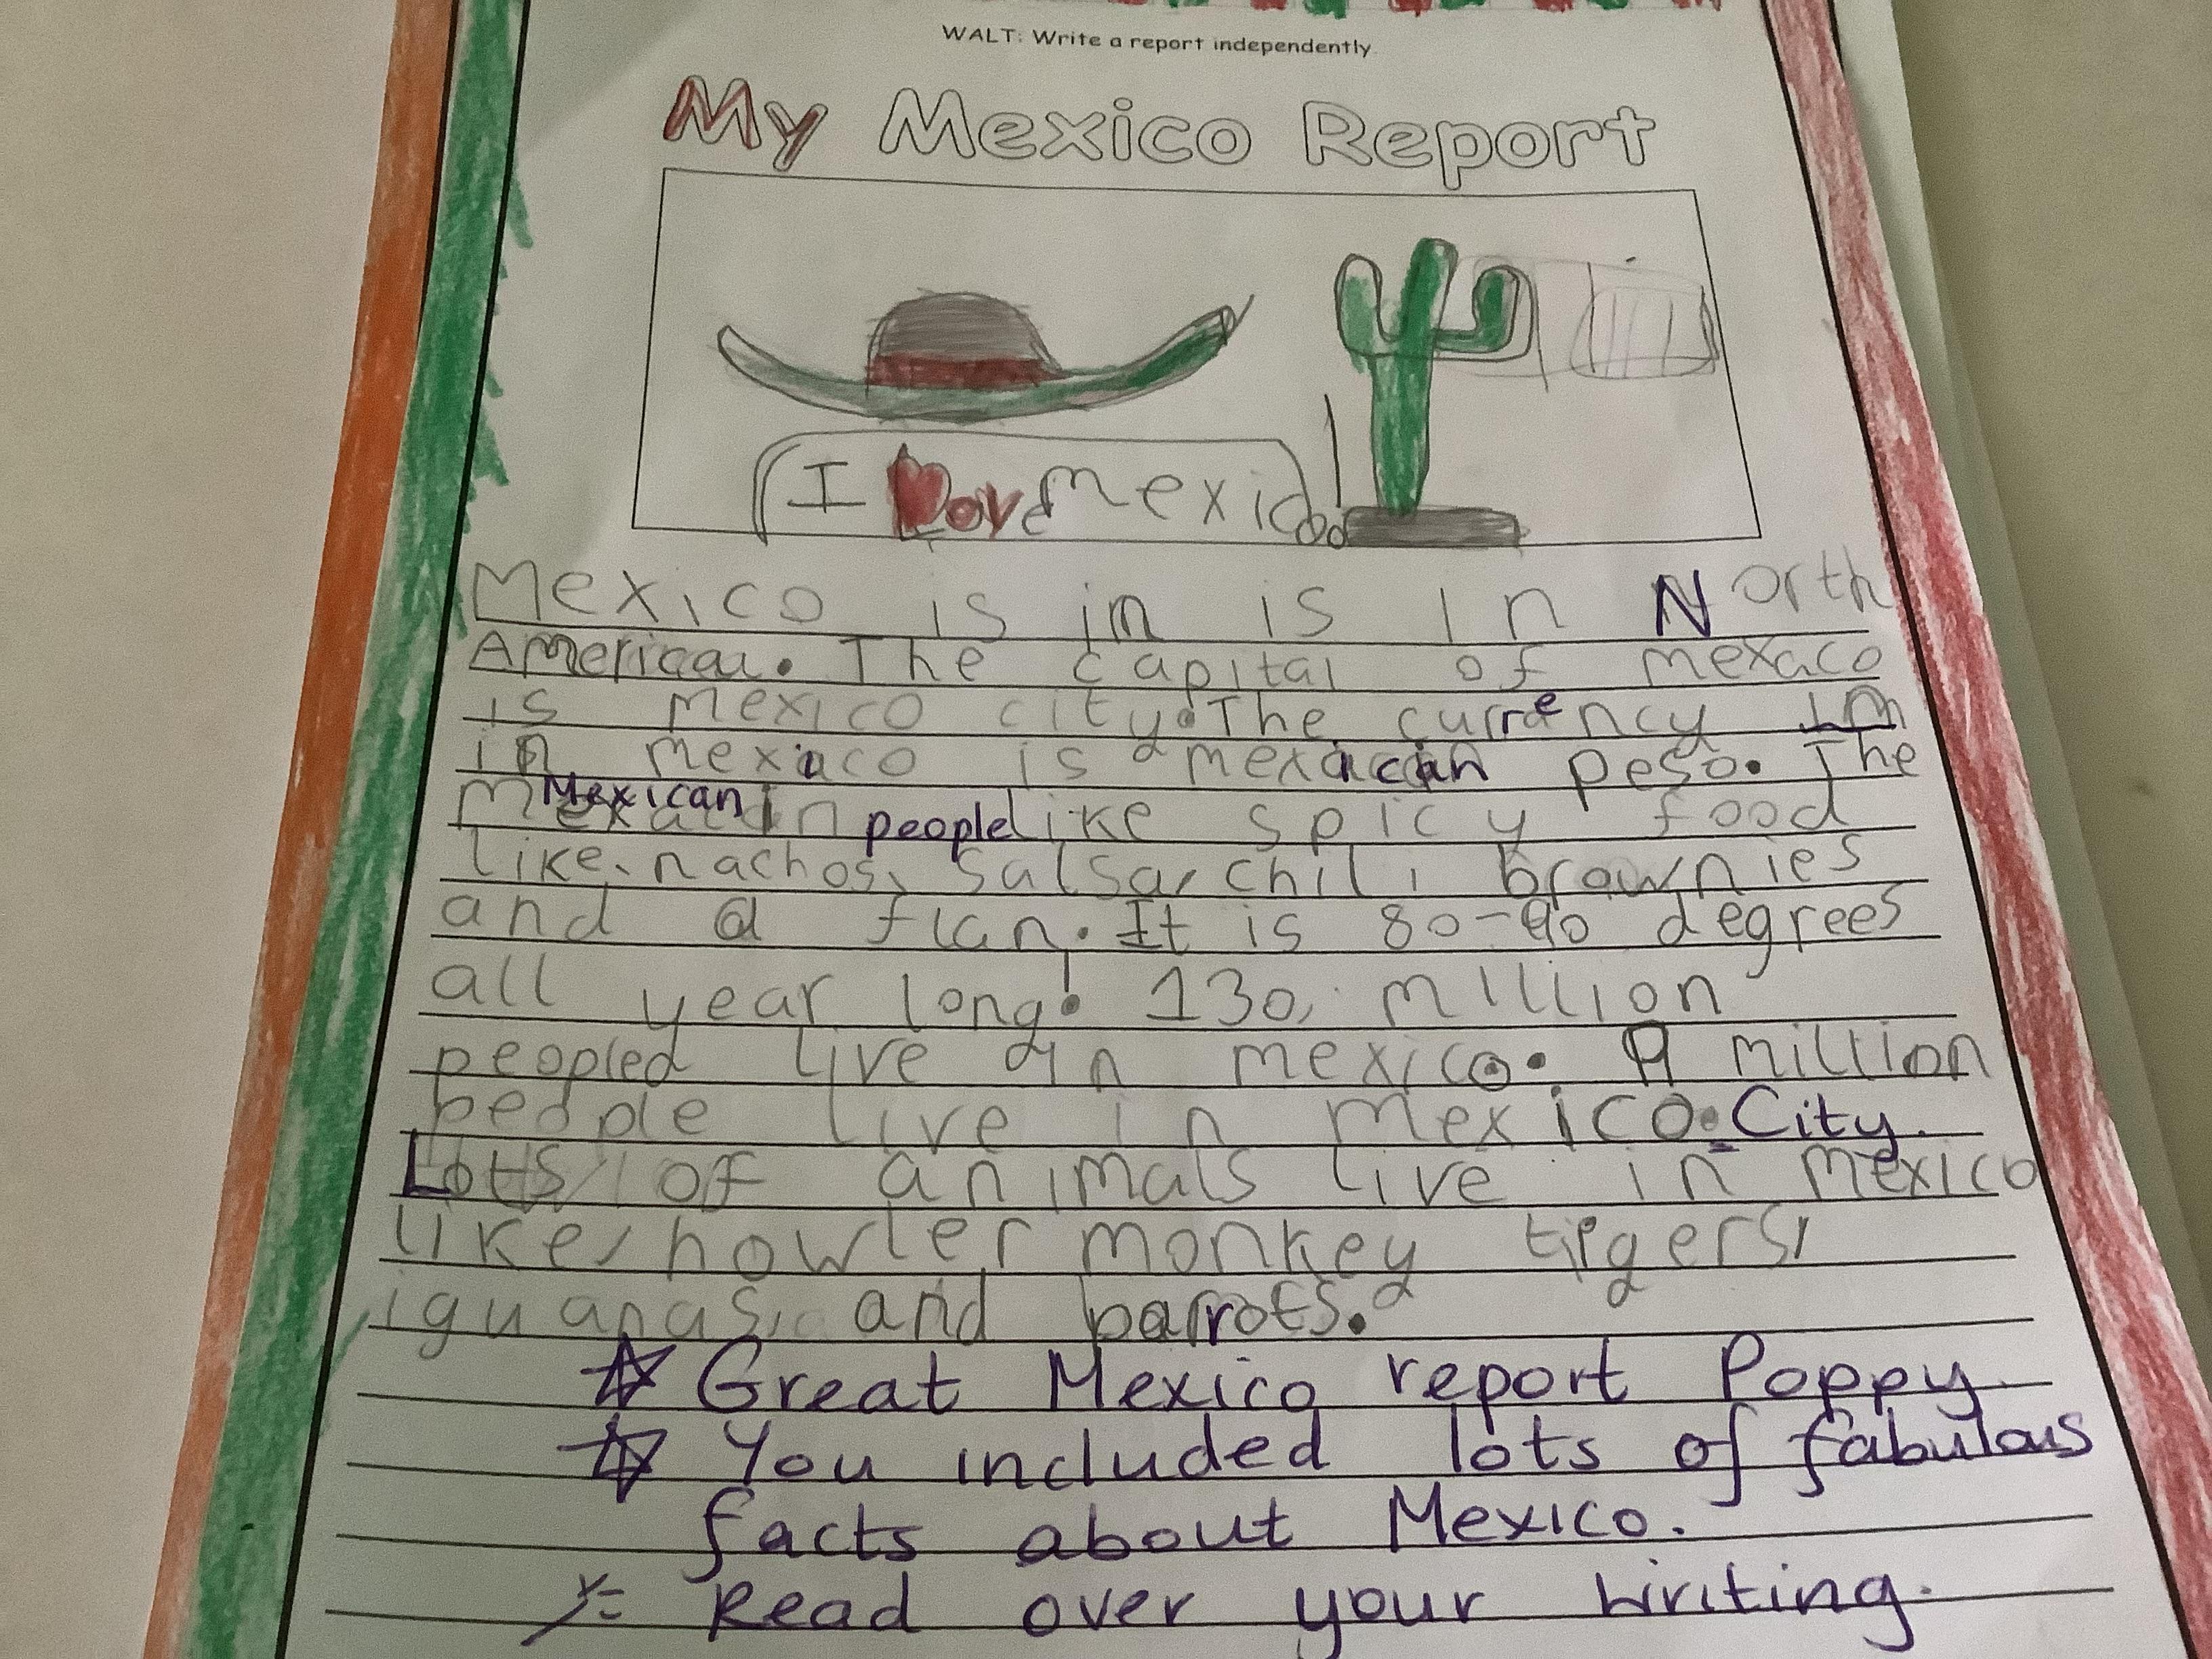 WALT: Write a report independently.
My Mexico Report
I Love mexico!
Mexico is in is in North
American. The capital of mexaco
is mexico city. The currency in
in mexico is mexacan peso. The
Mexican people like spicy food
like, nachos, salsa, chili, brownies
and a flan. It is 80-90 degrees
all year long! 130, million
peopled live in mexico. 9 million
people live in mexico City.
Lots of animals live in mexico
like, howler monkey tigers,
iguanas, and parrots.
Great Mexico report Poppy.
You included lots of fabulous
facts about Mexico.
Read over your writing.